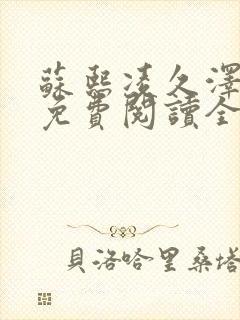 蘇熙凌久澤
免費閱讀全
貝洛哈里桑塔